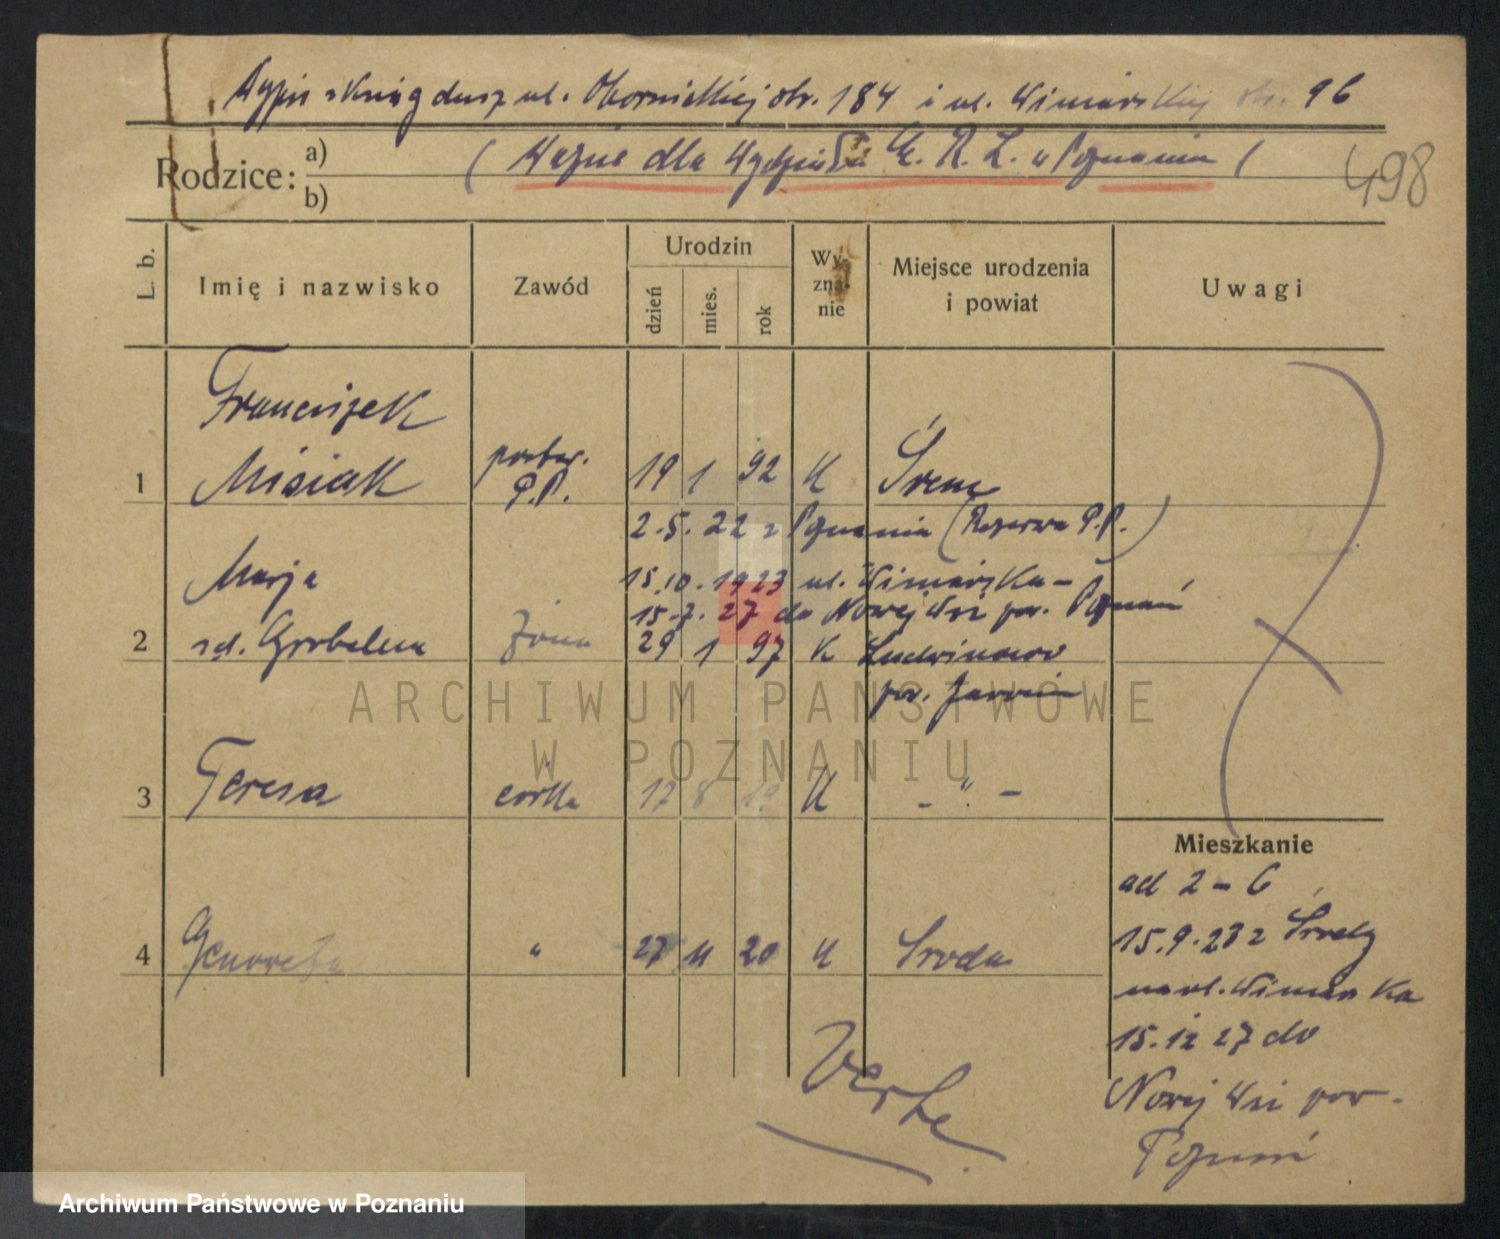 Wypis z Ksiąg dusz ul. Obornickiej str. 184 i ul. Winiarskiej str. 96
Rodzice: a)
b)
( Ważne dla Wydziału E. R. L. w Poznaniu )
498
L. b.
Imię i nazwisko
Zawód
Urodzin
dzień
mies.
rok
Wy-
zna-
nie
Miejsce urodzenia
i powiat
Uwagi
Franciszek
1 Misiak
P.P. 19 1 92 K Śrem
2.5.22 z Poznania (Rezerwa P.P.)
Marja
15.10.1923 ul. Winiarska -
15.7.27 do Nowej Wsi pow. Poznań
2 zd. Grobelna żona 29 1 97 K Ludwinowo
pow. Jarocin
3 Teresa córka 17 8 19 K - " -
Mieszkanie
ad 2 - 6
4 Genowefa " 27 11 20 K Środa
15.9.23 z Środy
na ul. Winiarska
15. 27 do
Nowej Wsi pow.
Poznań
Verte
ARCHIWUM PAŃSTWOWE
W POZNANIU
Archiwum Państwowe w Poznaniu